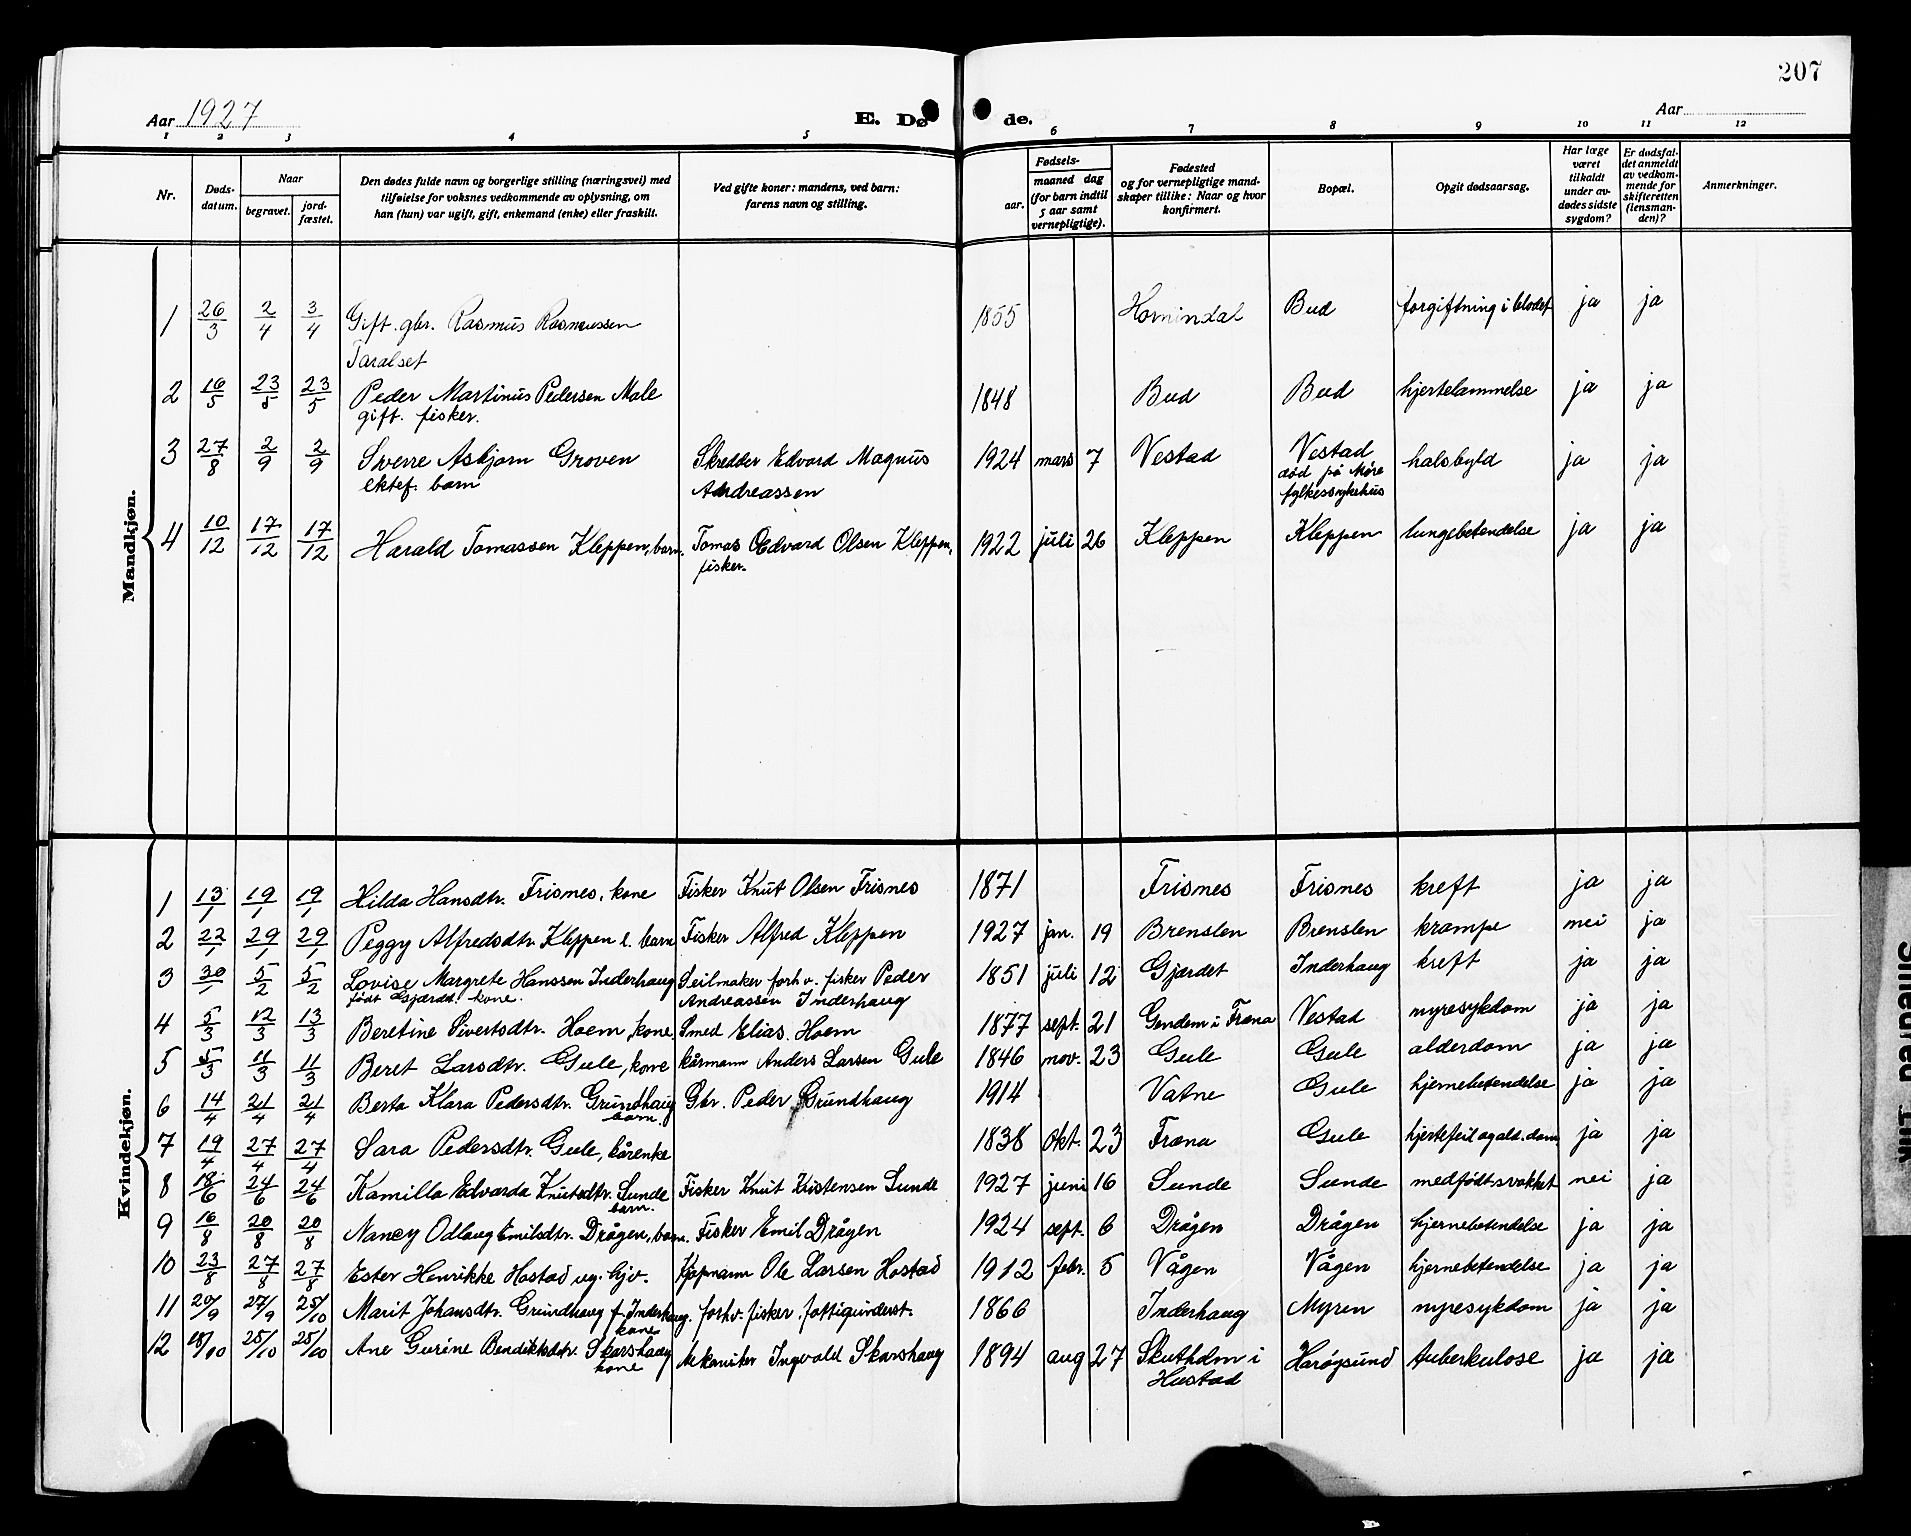 207
Aar 1927 E. Dø de. Aar
1 2 3 4 5 6 7 8 9 10 11 12
Nr. Døds-datum. Naar begravet. jord-fæstet. Den dødes fulde navn og borgerlige stilling (næringsvei) med tilføielse for voksnes vedkommende av oplysning, om han (hun) var ugift, gift, enkemand (enke) eller fraskilt. Ved gifte koner: mandens, ved barn: farens navn og stilling. Fødsels- aar. maaned dag (for barn indtil 5 aar samt vernepligtige). Fødested og for vernepligtige mandskaper tillike: Naar og hvor konfirmert. Bopæl. Opgit dødsaarsag. Har læge været tilkaldt under avdødes sidste sygdom? Er dødsfaldet anmeldt av vedkommende for skifteretten (lensmanden)? Anmerkninger.
Mandkjøn.
1 26/3 2/4 3/4 Gift. gbr. Rasmus Rasmussen 1855 Hornindal Bud forgiftning i blodet ja ja
Taralset
2 16/5 23/5 23/5 Peder Martinus Pedersen Male 1848 Bud Bud hjertelammelse ja ja
gift. fisker.
3 27/8 2/9 2/9 Sverre Asbjørn Groven Skredder Edvard Magnus 1924 mars 7 Vestad Vestad halsbyld ja ja
ektef. barn Andreassen død på Møre
fylkessykehus
4 10/12 17/12 17/12 Harald Tomassen Kleppen, barn. Tomas Edvard Olsen Kleppen, 1922 juli 26 Kleppen Kleppen lungebetendelse ja ja
fisker.
Kvindekjøn.
1 13/1 19/1 19/1 Hilda Hansdtr. Frisnes, kone Fisker Knut Olsen Frisnes 1871 Frisnes Frisnes kreft ja ja
2 22/1 29/1 29/1 Peggy Alfredsdtr. Kleppen e. barn Fisker Alfred Kleppen 1927 jan. 19 Brenslen Brenslen krampe nei ja
3 30/1 5/2 5/2 Lovise Margrete Hanssen Inderhaug Seilmaker forhv. fisker Peder 1851 juli 12 Gjærdet Inderhaug kreft ja ja
født Gjærdet. kone. Andreassen Inderhaug
4 5/3 12/3 13/3 Beretine Sivertsdtr. Hoem, kone. Smed Elias. Hoem 1877 sept. 21 Gendem i Fræna Vestad nyresykdom ja ja
5 5/3 11/3 11/3 Beret Larsdtr. Gule, kone kårmann Anders Larsen Gule 1846 nov. 23 Gule Gule alderdom ja ja
6 14/4 21/4 21/4 Berta Klara Pedersdtr. Grundhaug Gbr. Peder Grundhaug 1914 Vatne Gule hjernebetendelse ja ja
barn.
7 19/4 27/4 27/4 Sara Pedersdtr. Gule, kårenke 1838 okt. 23 Fræna Gule hjertefeil og ald.dom ja ja
8 18/6 24/6 24/6 Kamilla Edvarda Knutsdtr. Sunde Fisker Knut Kristensen Sunde 1927 juni 16 Sunde Sunde medfødt svakhet nei ja
barn.
9 16/8 20/8 20/8 Nancy Odlaug Emilsdtr. Drågen, barn. Fisker Emil Drågen 1924 sept. 6 Drågen Drågen hjernebetendelse ja ja
10 23/8 27/8 27/8 Ester Henrikke Hostad ug. hjv. Kjøpmann Ole Larsen Hostad 1912 febr. 5 Vågen Vågen hjernebetendelse ja ja
11 20/9 27/9 25/10 Marit Johansdtr. Grundhaug f. Inderhaug. forhv. fisker. fattigunderst. 1866 Inderhaug Myren nyresykdom ja ja
kone
12 18/10 25/10 25/10 Ane Gurine Bendiktsdtr. Skarshaug Mekaniker Ingvald Skarshaug 1894 aug 27 Skutholm i Harøysund tuberkulose ja ja
kone Hustad